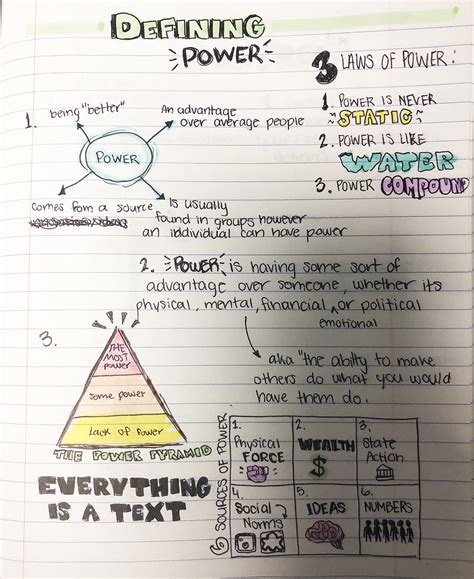 DEFINING
POWER
3 LAWS OF POWER:
1. POWER IS NEVER
STATIC
2. POWER IS LIKE
WATER
3. POWER COMPOUND
1.
being "better"
An advantage
over average people
POWER
comes fom a source
is usually
found in groups however
an individual can have power
2. POWER is having some sort of
advantage over someone, whether its
physical, mental, financial, or political
emotional
aka "the ability to make
others do what you would
have them do.
3.
THE
MOST
POWER
Some power
Lack of Power
THE POWER PYRAMID
EVERYTHING
IS A TEXT
6 SOURCES OF POWER
1.
Physical
FORCE
2.
WEALTH
$
3.
State
Action
4.
Social
Norms
5.
IDEAS
6.
NUMBERS